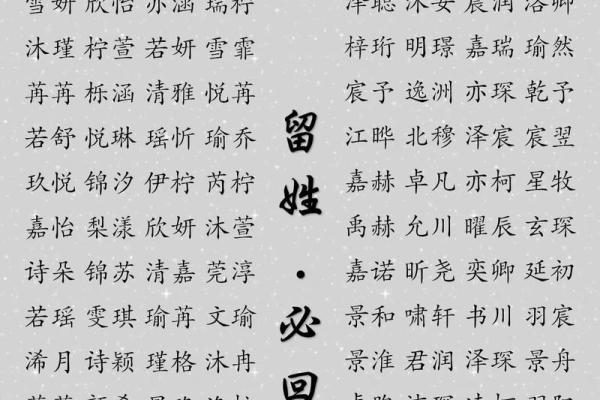 雪妍 欣怡 亦涵 瑞柠
沐瑾 柠萱 若妍 雪霏
苒苒 栎涵 清雅 悦苒
若舒 悦琳 瑶忻 瑜乔
玖悦 锦汐 伊柠 芮柠
嘉怡 梨漾 欣妍 沐萱
诗朵 锦苏 清嘉 莞淳
若瑶 雯琪 瑜苒 文瑜
浠月 诗颖 瑾格 沐冉
留姓·必回
泽聪 沐安 宸润 洛卿
梓珩 明璟 嘉瑞 瑜然
宸予 逸洲 亦琛 乾予
江晔 北穆 泽宸 宸翌
嘉赫 卓凡 亦柯 星牧
禹赫 允川 曜辰 玄琛
嘉诺 昕尧 奕卿 延初
景和 啸轩 书川 羽宸
景淮 君润 泽琛 景舟